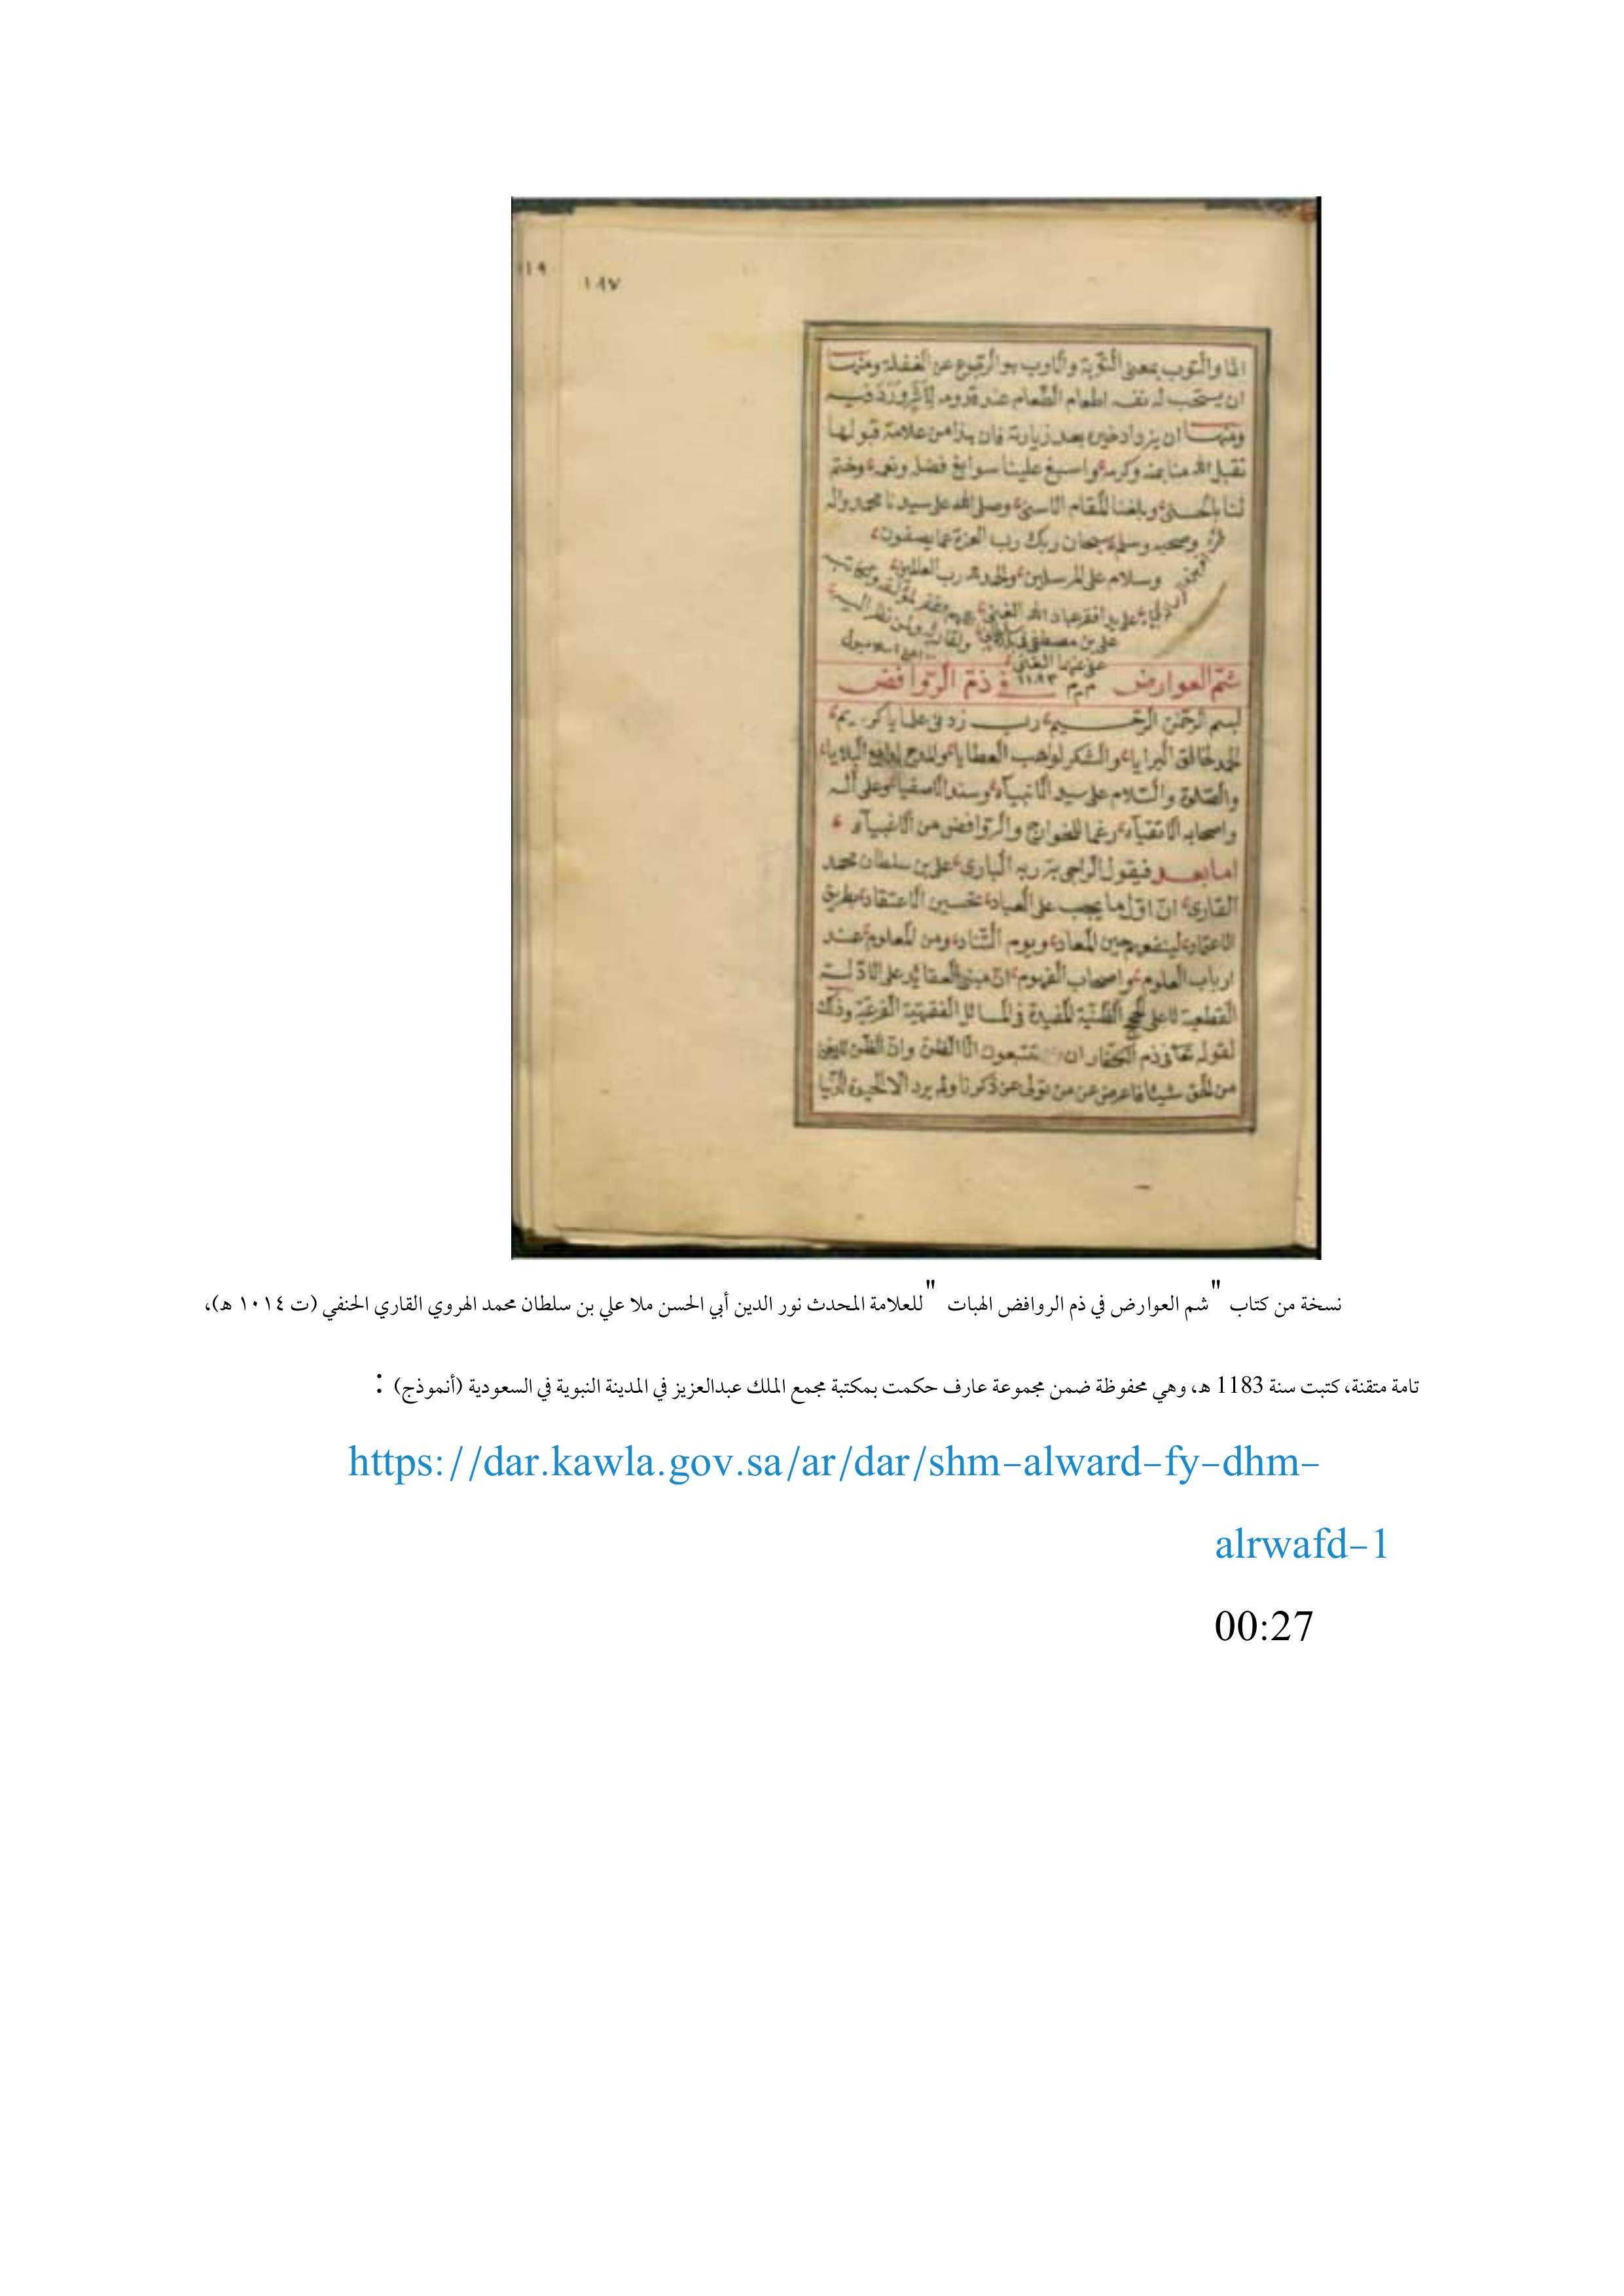 ١٩
١٨٧
الما والتوب بمعنى التوبة والاوب هو الرجوع عن الغفلة ومنها
ان يستحب له اطعام الطعام عند قدومه
ومنها ان يزداد خيره بعد زيارته فان هذا من علامة قبولها
تقبل الله منا بمنه وكرمه واسبغ علينا سوابغ فضله ونعمه وختم
لنا بالحسنى وبلغنا المقام الاسنى وصلى الله على سيدنا محمد واله
وصحبه وسلم سبحان ربك رب العزة عما يصفون
وسلام على المرسلين والحمد لله رب العالمين
افقر عباد الله الغني
علي بن مصطفى
عفى عنهما الغني
شم العوارض ١١٨٣ في ذم الروافض
بسم الرحمن الرحيم رب زدني علما يا كريم
الحمد لخالق البرايا والشكر لواهب العطايا والمدح لدافع البلايا
والصلوة والسلام على سيد الانبياء وسند الاصفياء وعلى آله
واصحابه الاتقياء رغما للخوارج والروافض من الاغبياء
اما بعد فيقول الراجي بر ربه الباري علي بن سلطان محمد
القاري ان اول ما يجب على العباد تحسين الاعتقاد بطريق
الاعتماد لينفعهم حين المعاد ويوم التناد ومن المعلوم عند
ارباب العلوم واصحاب الفهوم ان مبنى العقائد على الادلة
القطعية لا على الحجج الظنية المفيدة في المسائل الفقهية الفرعية وذلك
لقوله تعا في ذم الكفار ان يتبعون الا الظن وان الظن لا يغني
من الحق شيئا فاعرض عن من تولى عن ذكرنا ولم يرد الا الحيوة الدنيا
نسخة من كتاب "شم العوارض في ذم الروافض الهبات "للعلامة المحدث نور الدين أبي الحسن ملا علي بن سلطان محمد الهروي القاري الحنفي (ت ١٠١٤ هـ)،
تامة متقنة، كتبت سنة 1183 هـ، وهي محفوظة ضمن مجموعة عارف حكمت بمكتبة مجمع الملك عبدالعزيز في المدينة النبوية في السعودية (أنموذج) :
https://dar.kawla.gov.sa/ar/dar/shm-alward-fy-dhm-
alrwafd-1
00:27